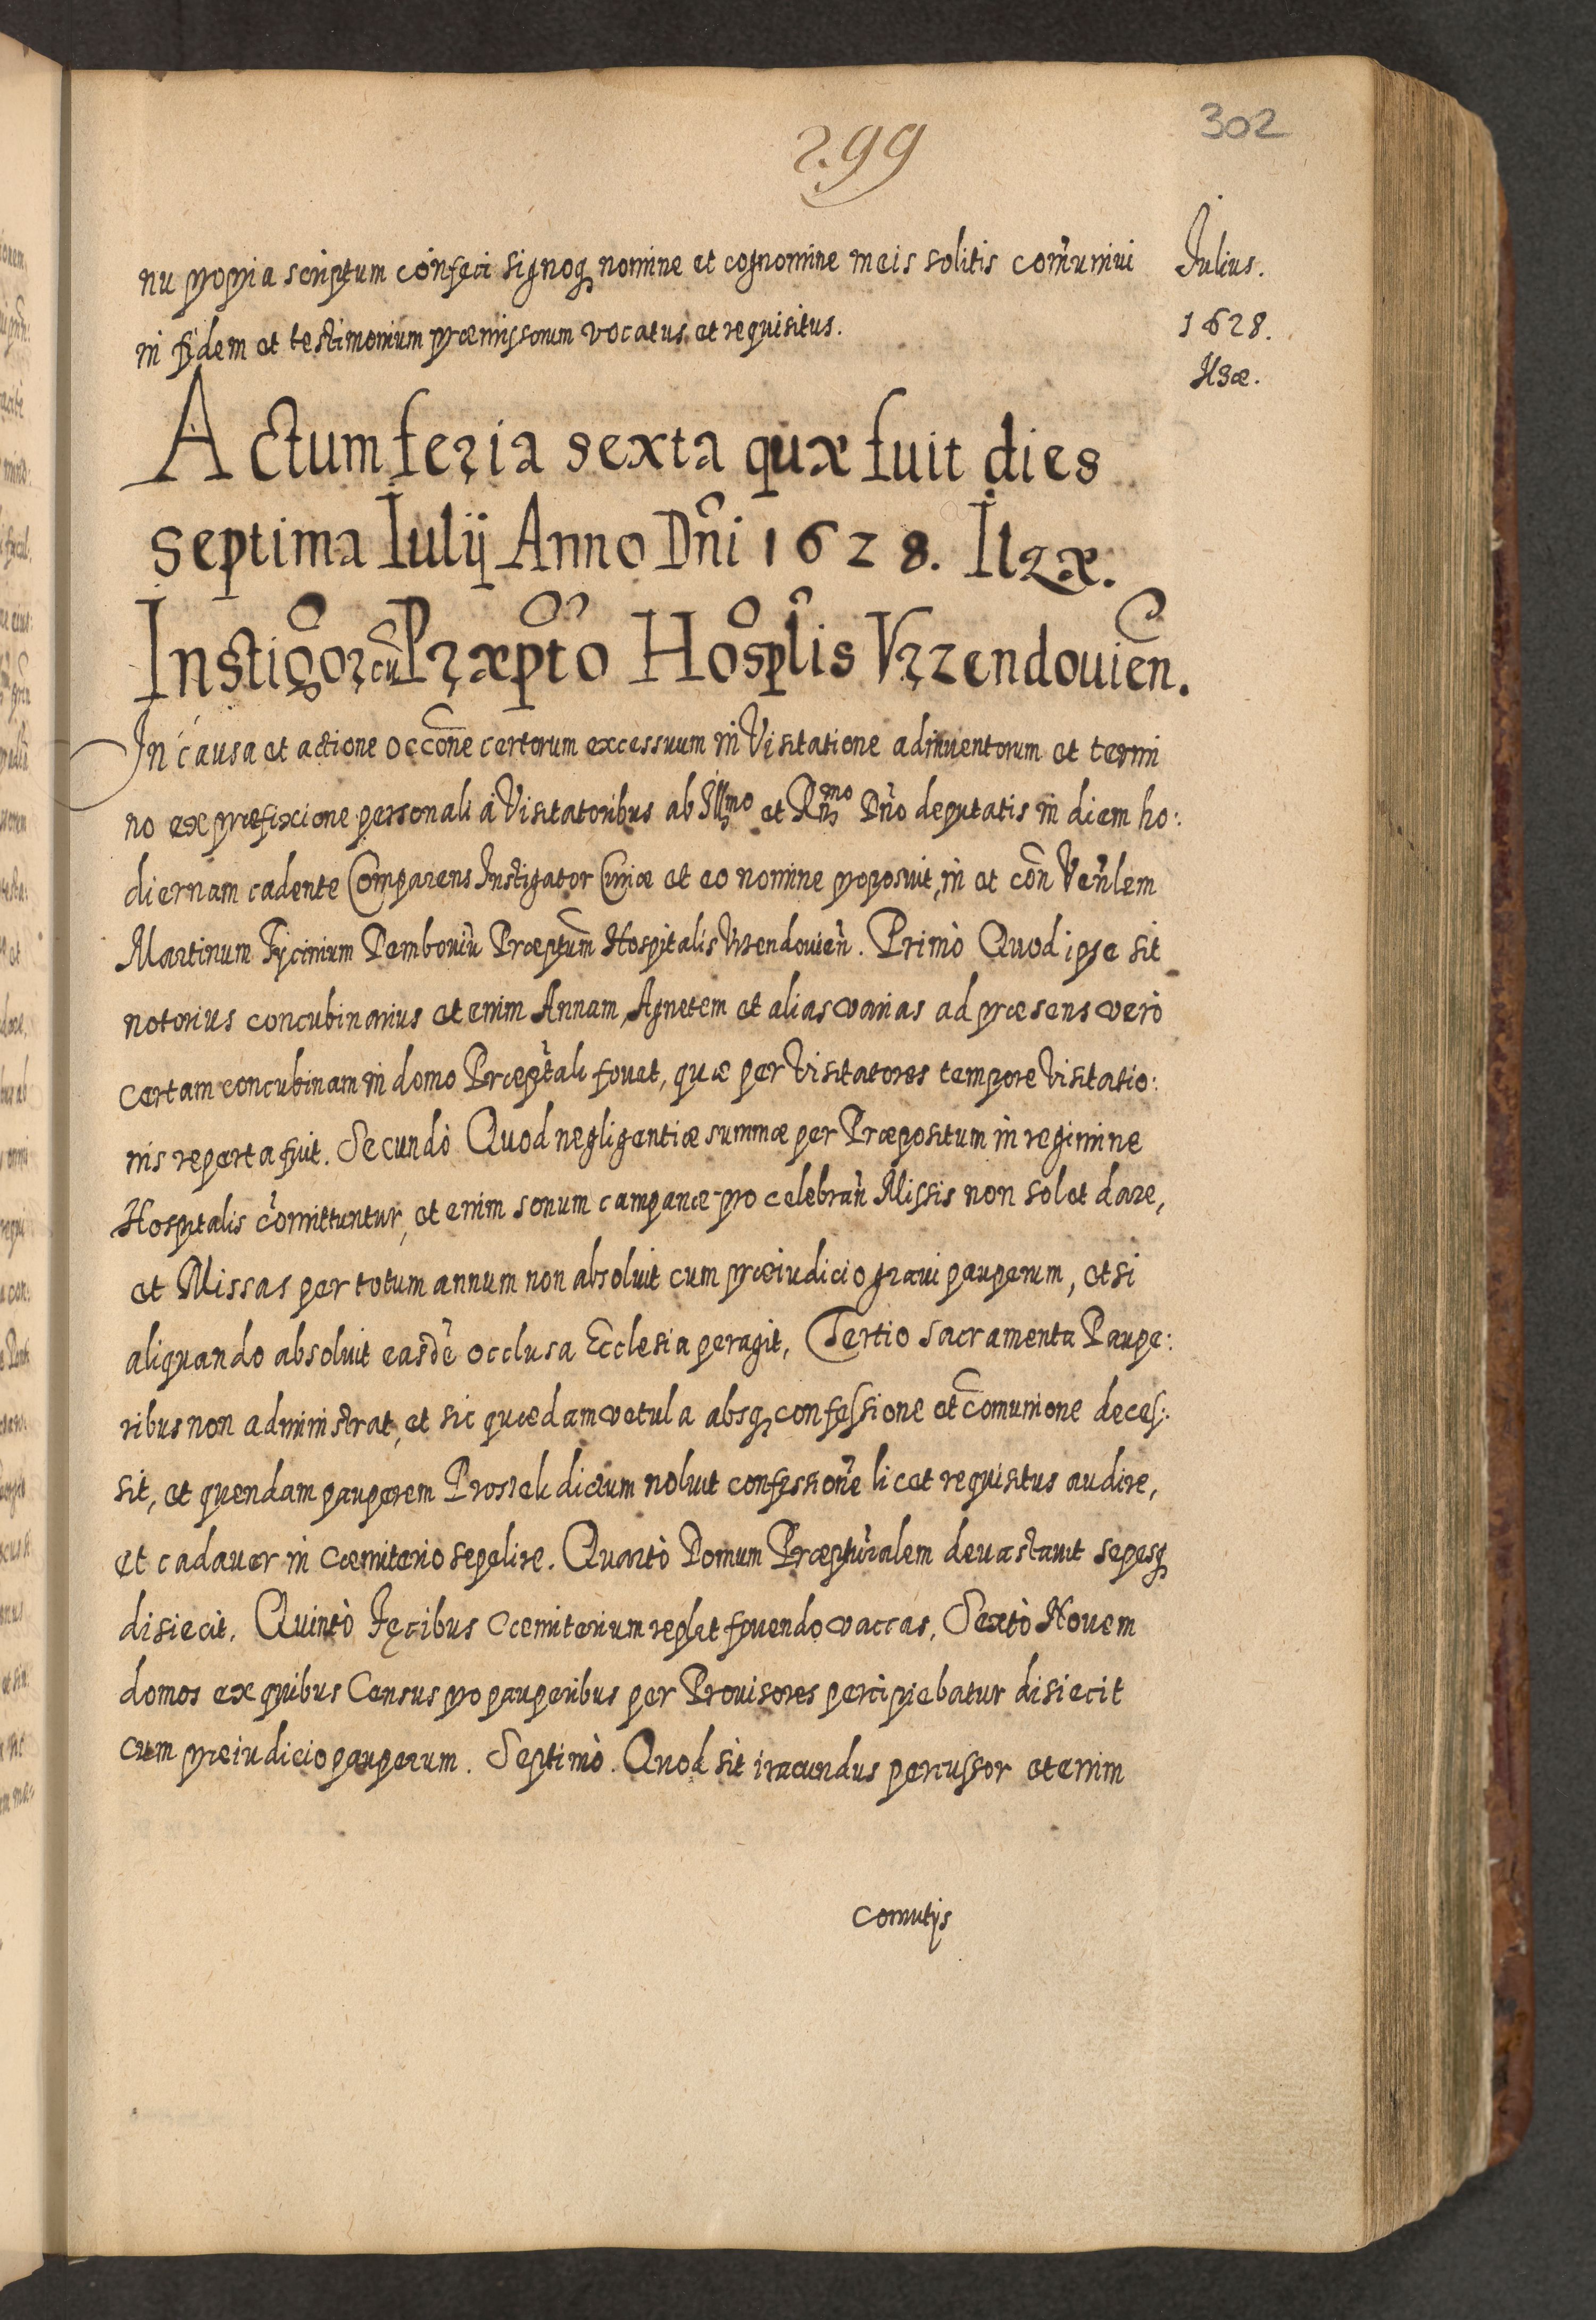 302
299
nu propria scriptum confeci signoq nomine et cognomine meis solitis com̃uniui
in fidem et testimonium præmissorum vocatus et requisitus.
Julius.
1628.
Ilzæ.
Actum feria sexta quæ fuit dies
septima Iulij Anno Dñi 1628. Ilzæ.
Instigõr cũ Præptõ Hosplis Vrzendouieñ.
In causa et actione occõne certorum excessuum in Visitatione adinuentorum et termi
no ex præfixione personali à Visitatoribus ab Illmo et Rñmo Dño deputatis in diem ho:
diernam cadente Comparens Instigator Curiæ et eo nomine proposuit, in et cõn Veñlem
Martinum Fycinium Dembouiũ Præptum Hospitalis Vrzendouieñ. Primò Quod ipse sit
notorius concubinarius et enim Annam, Agnetem et alias varias ad præsens verò
certam concubinam in domo Præptali fouet, quæ per Visitatores tempore Visitatio:
nis reperta fuit. Secundò Quod negligentiæ summæ per Præpositum in regimine
Hospitalis com̃ittuntur, et enim sonum campanæ pro celebrañ Missis non solet dare,
et Missas per totum annum non absoluit cum præiudicio graui pauperum, et si
aliquando absoluit easdẽ occlusa Ecclesia peragit, Tertio sacramenta Paupe:
ribus non administrat, et sic quædam vetula absq confessione et comunione deces:
sit, et quendam pauperem Prosiek dictum noluit confessionẽ licet requisitus audire,
et cadauer in Cæmiterio sepelire. Quartò Domum Præpturalem deuastauit sepesq
disiecit. Quintò Fęcibus Cœmiterium replet fouendo vaccas, Sextò Nouem
domos ex quibus Census pro pauperibus per Prouisores percipiebatur disiecit
cum præiudicio pauperum. Septimò. Quod sit iracundus percussor et enim
conuitijs